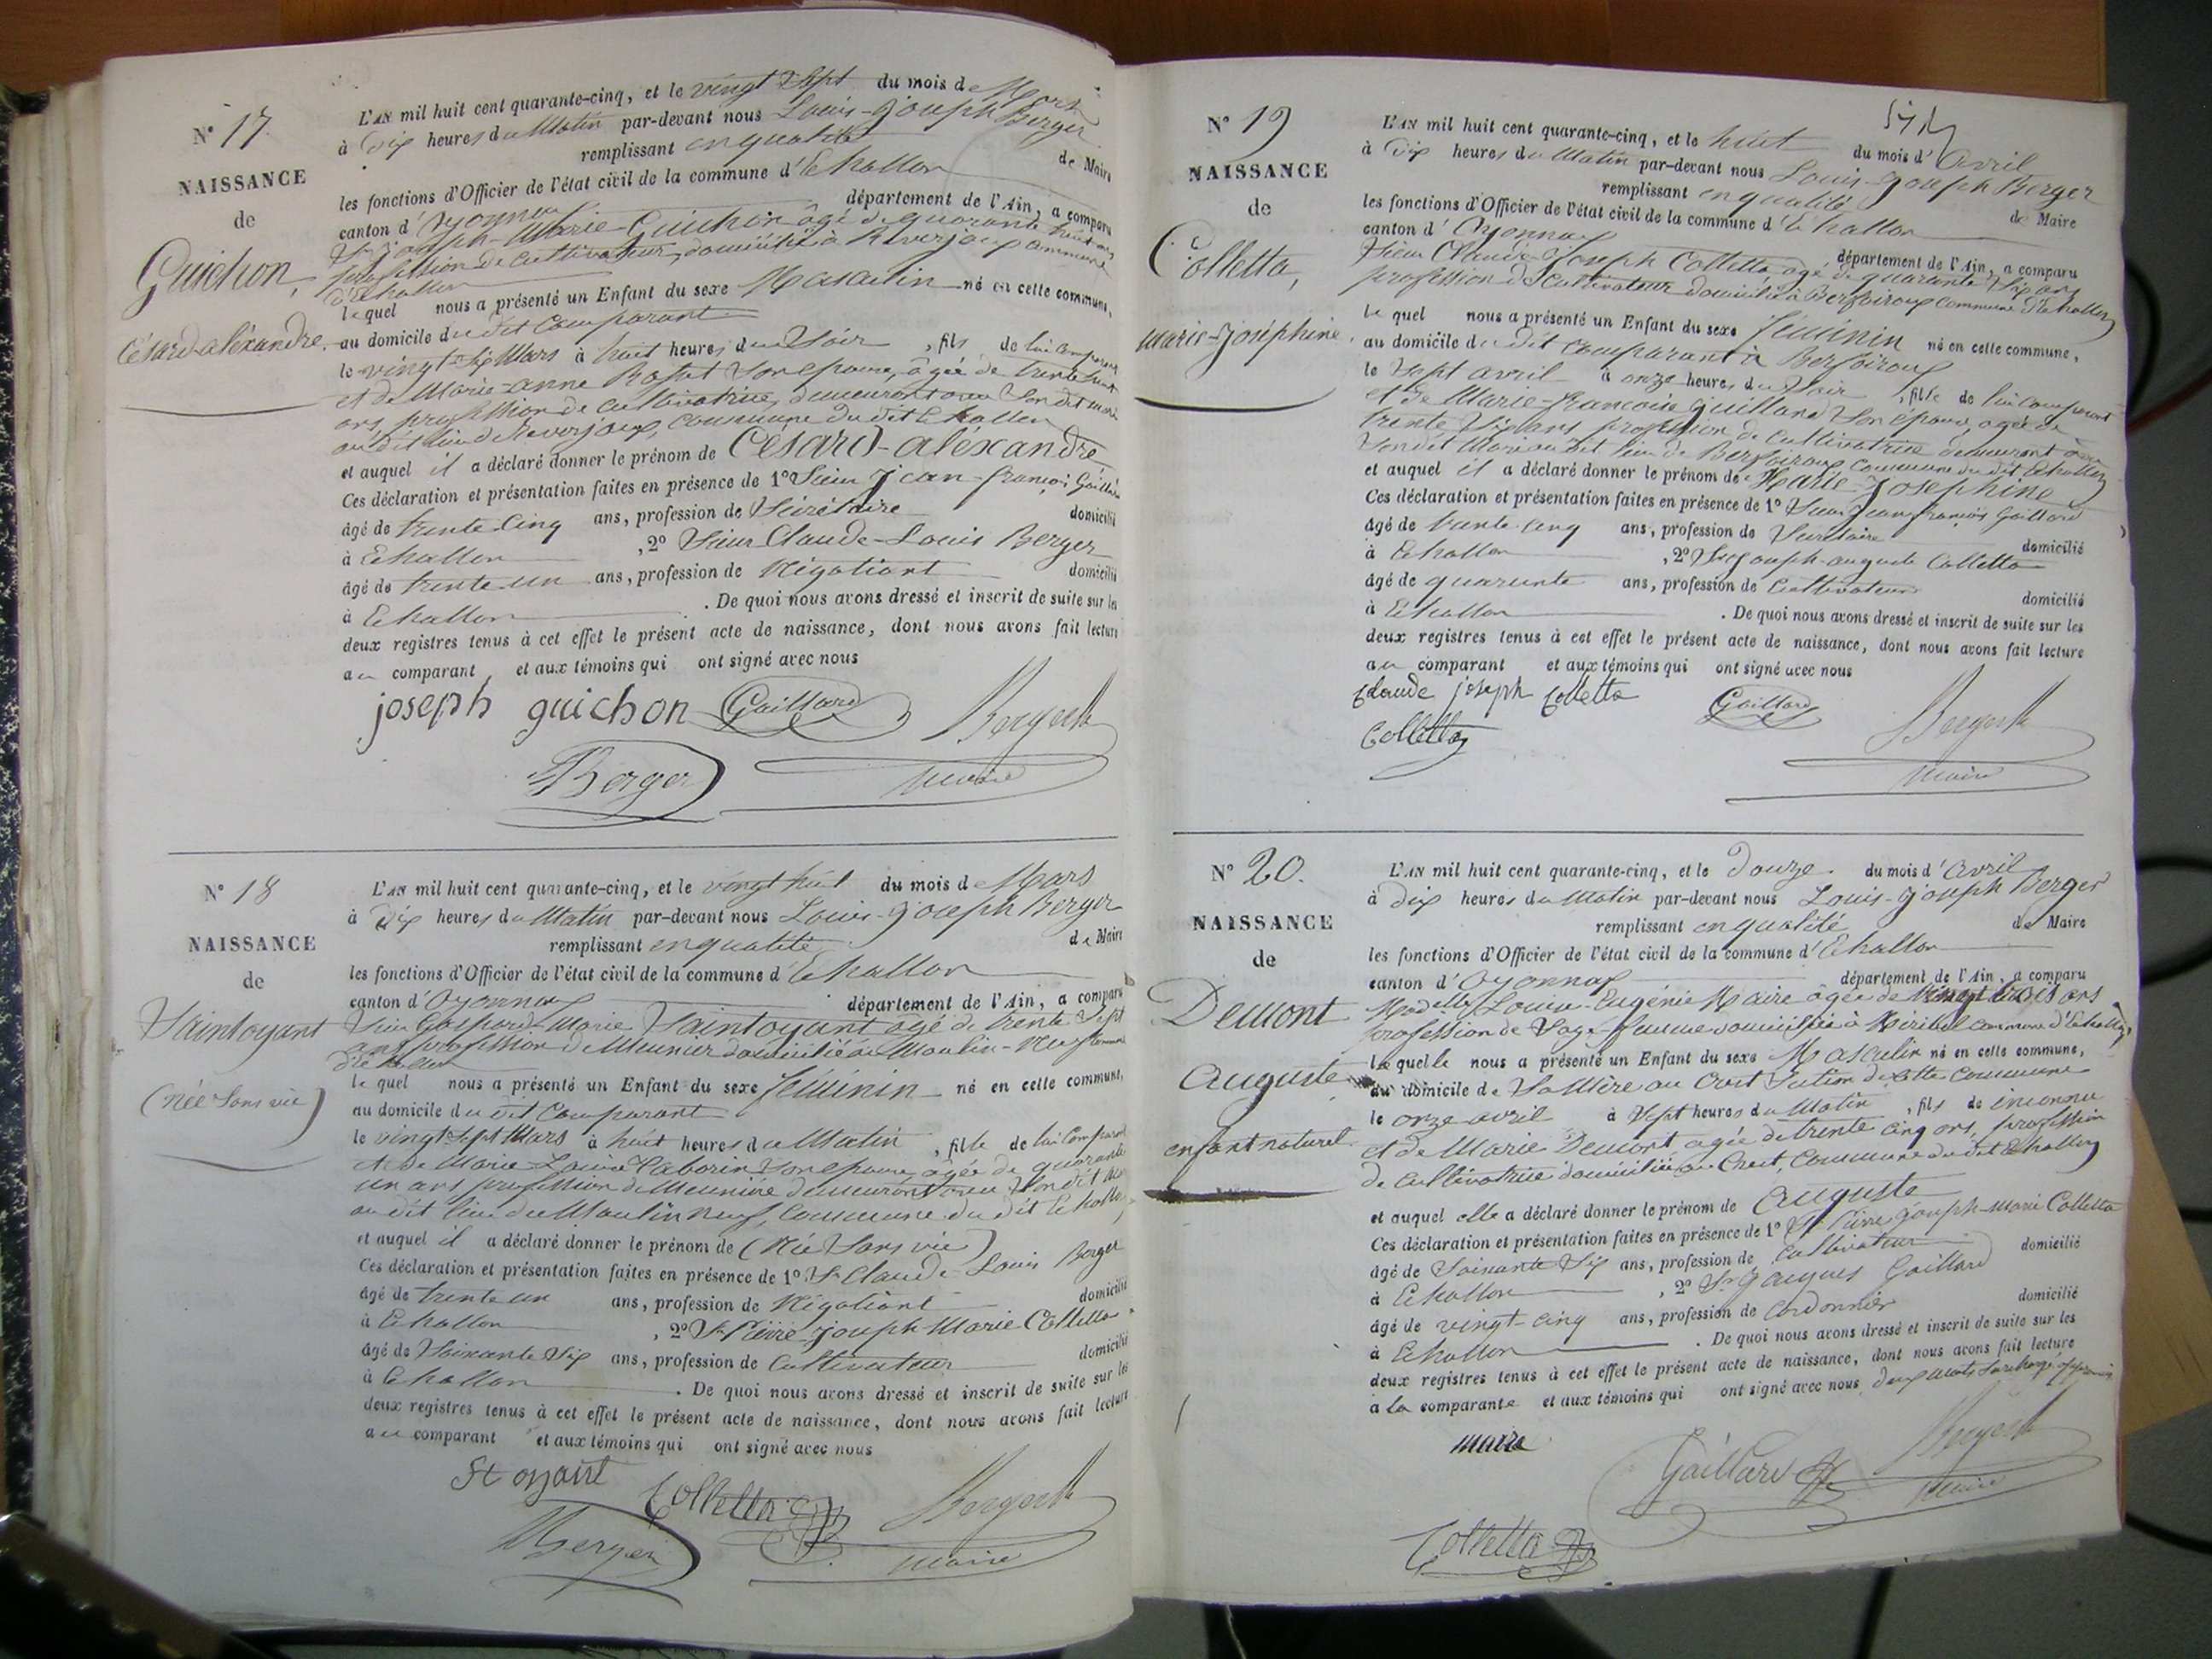 N° 17
NAISSANCE
de
Guichon,
Césard-aléxandre.
L'AN mil huit cent quarante-cinq, et le vingt Sept du mois de Mars
à Dix heures du Matin par-devant nous Louis-Joseph Berger
remplissant en qualité de Maire
les fonctions d'Officier de l'état civil de la commune d'Echallon
canton d'Oyonnax département de l'Ain, a comparu
Sr Joseph-Marie Guichon âgé de quarante huit ans
profession de cultivateur, domicilié à commune
d'Echallon
lequel nous a présenté un Enfant du sexe Masculin né en cette commune,
au domicile du dit Comparant
le vingt-Six Mars à huit heures du Soir, fils de lui Comparant
et de Marie-anne Son épouse, âgée de trente huit
ans, profession de cultivatrice, demeurant avec Son dit mari
au dit lieu de commune du dit Echallon
et auquel il a déclaré donner le prénom de Césard-aléxandre
Ces déclaration et présentation faites en présence de 1° Sieur Jean-françois Gaillard
âgé de trente Cinq ans, profession de Sécrétaire domicilié
à Echallon, 2° Sieur Claude-Louis Berger
âgé de trente un ans, profession de Négotiant domicilié
à Echallon. De quoi nous avons dressé et inscrit de suite sur les
deux registres tenus à cet effet le présent acte de naissance, dont nous avons fait lecture
au comparant et aux témoins qui ont signé avec nous
joseph guichon Gaillard
Berger maire
N° 18
NAISSANCE
de
Saintoyant
(née Sans vie)
L'AN mil huit cent quarante-cinq, et le vingt huit du mois de Mars
à Dix heures du Matin par-devant nous Louis-Joseph Berger
remplissant en qualité de Maire
les fonctions d'Officier de l'état civil de la commune d'Echallon
canton d'Oyonnax département de l'Ain, a comparu
Sieur Gaspard-Marie Saintoyant âgé de trente Sept
ans, profession de Meunier domicilié au Moulin-Neuf commune
d'Echallon
lequel nous a présenté un Enfant du sexe féminin né en cette commune,
au domicile du dit Comparant
le vingt Sept Mars à huit heures du Matin, fille de lui Comparant
et de Marie-Louise Taborin Son épouse, âgée de quarante
un ans profession de Meunière demeurant avec Son dit Mari
au dit lieu du Moulin neuf, Commune du dit Echallon,
et auquel il a déclaré donner le prénom de (Née Sans vie)
Ces déclaration et présentation faites en présence de 1° Sr Claude-Louis Berger
âgé de trente un ans, profession de Négotiant domicilié
à Echallon, 2° Sr Pierre-Joseph-Marie Colletta
âgé de Soixante Six ans, profession de Cultivateur domicilié
à Echallon. De quoi nous avons dressé et inscrit de suite sur les
deux registres tenus à cet effet le présent acte de naissance, dont nous avons fait lecture
au comparant et aux témoins qui ont signé avec nous
St oyant Colletta
Berger maire
N° 19
NAISSANCE
de
Colletta,
marie-Joséphine.
L'AN mil huit cent quarante-cinq, et le huit du mois d'Avril
à Dix heures du Matin par-devant nous Louis-Joseph Berger
remplissant en qualité de Maire
les fonctions d'Officier de l'état civil de la commune d'Echallon
canton d'Oyonnax département de l'Ain, a comparu
Sieur Claude-Joseph Colletta âgé de quarante Six ans
profession de Cultivateur domicilié à commune d'Echallon
lequel nous a présenté un Enfant du sexe féminin né en cette commune,
au domicile du dit Comparant à
le Sept avril à onze heures du Soir, fille de lui Comparant
et de Marie-françoise Guilland Son épouse, âgée de
trente Six ans profession de Cultivatrice demeurant avec
Son dit Mari au dit lieu de commune du dit Echallon
et auquel il a déclaré donner le prénom de Marie-Josephine
Ces déclaration et présentation faites en présence de 1° Sieur Jean françois Gaillard
âgé de trente cinq ans, profession de Secrétaire domicilié
à Echallon, 2° Sr Joseph-auguste Colletta
âgé de quarante ans, profession de Cultivateur domicilié
à Echallon. De quoi nous avons dressé et inscrit de suite sur les
deux registres tenus à cet effet le présent acte de naissance, dont nous avons fait lecture
au comparant et aux témoins qui ont signé avec nous
Claude joseph Colletta Gaillard
Colletta maire
N° 20.
NAISSANCE
de
Demont
Auguste
enfant naturel.
L'AN mil huit cent quarante-cinq, et le Douze du mois d'Avril
à Dix heures du Matin par-devant nous Louis-Joseph Berger
remplissant en qualité de Maire
les fonctions d'Officier de l'état civil de la commune d'Echallon
canton d'Oyonnax département de l'Ain, a comparu
Madelle Louise-Eugénie Maire âgée de Vingt trois ans
profession de Sage-femme domiciliée à commune d'Echallon,
laquelle nous a présenté un Enfant du sexe Masculin né en cette commune,
au domicile de Sa Mère au Cret Section de cette Commune
le onze avril à Sept heures du Matin, fils de inconnu
et de Marie Demont âgée de trente cinq ans, profession
de Cultivatrice domiciliée au Cret, Commune du dit Echallon
et auquel elle a déclaré donner le prénom de Auguste
Ces déclaration et présentation faites en présence de 1° Sr Pierre Joseph-Marie Colletta
âgé de Soixante Six ans, profession de Cultivateur domicilié
à Echallon, 2° Sr Jacques Gaillard
âgé de vingt-cinq ans, profession de Cordonnier domicilié
à Echallon. De quoi nous avons dressé et inscrit de suite sur les
deux registres tenus à cet effet le présent acte de naissance, dont nous avons fait lecture
à la comparante et aux témoins qui ont signé avec nous deux mots surchargé approuvés
maire
Gaillard maire
Colletta